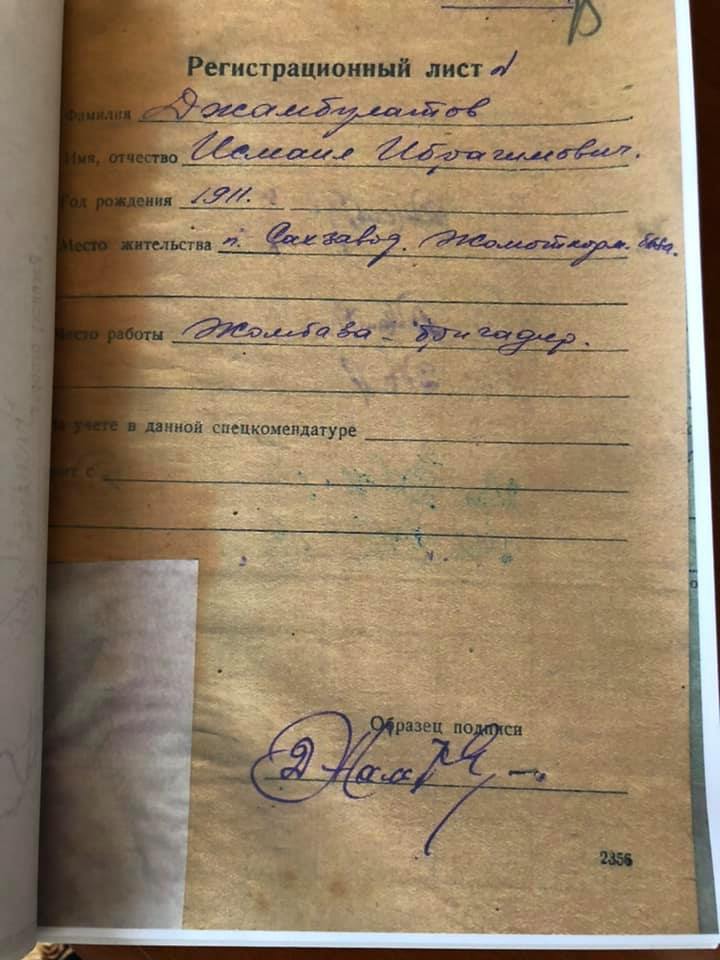 Регистрационный лист
Фамилия Джамбулатов
Имя, отчество Исмаил Ибрагимович.
Год рождения 1911.
Место жительства п. Сахзавод. Жомоткорм. база.
Место работы Жомбаза - бригадир.
На учете в данной спецкомендатуре
с
Образец подписи
2356